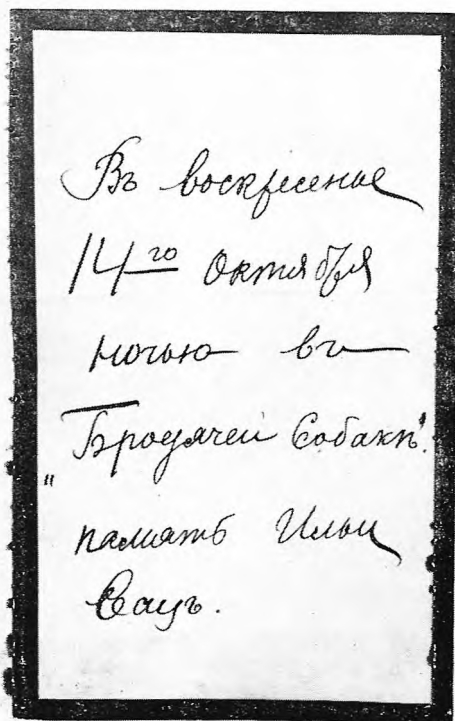 Въ воскресенье
14го октября
ночью въ
"Бродячей Собакѣ".
память Ильи
Сацъ.